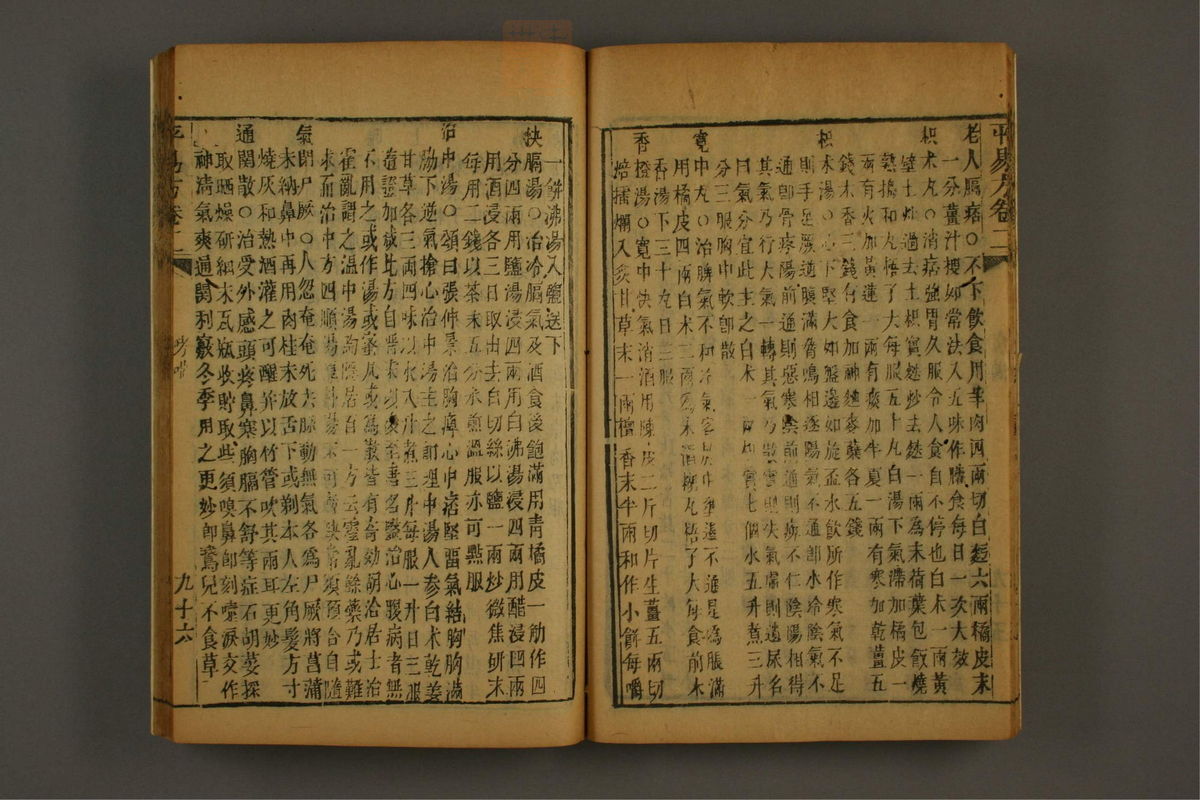 平易方卷二
老人膈痞○不下飲食用羊肉四兩切白麪六兩橘皮末
一分薑汁搜如常法入五味作臛食每日一次大效
枳朮丸○消痞強胃久服令人食自不停也白朮一兩黃
壁土炒過去土枳實麩炒去麩一兩為末荷葉包飯燒
熟搗和丸梧子大每服五十丸白湯下氣滯加橘皮一
兩有火加黃連一兩有痰加半夏一兩有寒加乾薑五
錢木香三錢有食加神麯麥蘖各五錢
枳朮湯○心下堅大如盤邊如旋盃水飲所作寒氣不足
則手足厥逆腹滿脅鳴相逐陽氣不通即水冷陰氣不
通即骨疼陽前通則惡寒陰前通則痹不仁陰陽相得
其氣乃行大氣一轉其氣乃散實則失氣虛則遺尿名
曰氣分宜此主之白朮一兩枳實七個水五升煮三升
分三服胸中軟即散
寬中丸○治脾氣不和冷氣客於中壅遏不通是為脹滿
用橘皮四兩白朮二兩為末酒糊丸梧子大每食前木
香湯下三十丸日三服
香橙湯○寬中快氣消酒用陳皮二斤切片生薑五兩切
焙擂爛入炙甘草末一兩檀香末半兩和作小餅每嚼
一餅沸湯入鹽送下
快膈湯○治冷膈氣及酒食後飽滿用青橘皮一觔作四
分四兩用鹽湯浸四兩用白沸湯浸四兩用醋浸四兩
用酒浸各三日取出去白切絲以鹽一兩炒微焦研末
每用二錢以茶末五分水煎溫服亦可點服
治中湯○頌曰張仲景治胸痹心中痞堅留氣結胸胸滿
脇下逆氣搶心治中湯主之即理中湯人參白朮乾姜
甘草各三兩四味以水八升煮三升每服一升日三服
隨證加減此方自晉宋以後至唐名醫治心腹病者無
不用之或作湯或蜜丸或為散皆有奇効胡洽居士治
霍亂謂之溫中湯陶隱居百一方云霍亂餘藥乃或難
求而治中方四順湯厚朴湯不可暫缺常須預合自隨
氣閉尸厥○人忽奄奄死去脉動無氣各為尸厥將菖蒲
末納鼻中再用肉桂末放舌下或剃本人左角髮方寸
燒灰和熱酒灌之可醒并以竹管吹其兩耳更妙
通關散○治受外感頭疼鼻塞胸膈不舒等症石胡荽採
取晒燥研細末瓦瓶收貯取些須嗅鼻即刻嚏淚交作
神清氣爽通關利竅冬季用之更妙即鵞兒不食草
平易方卷二
九十六